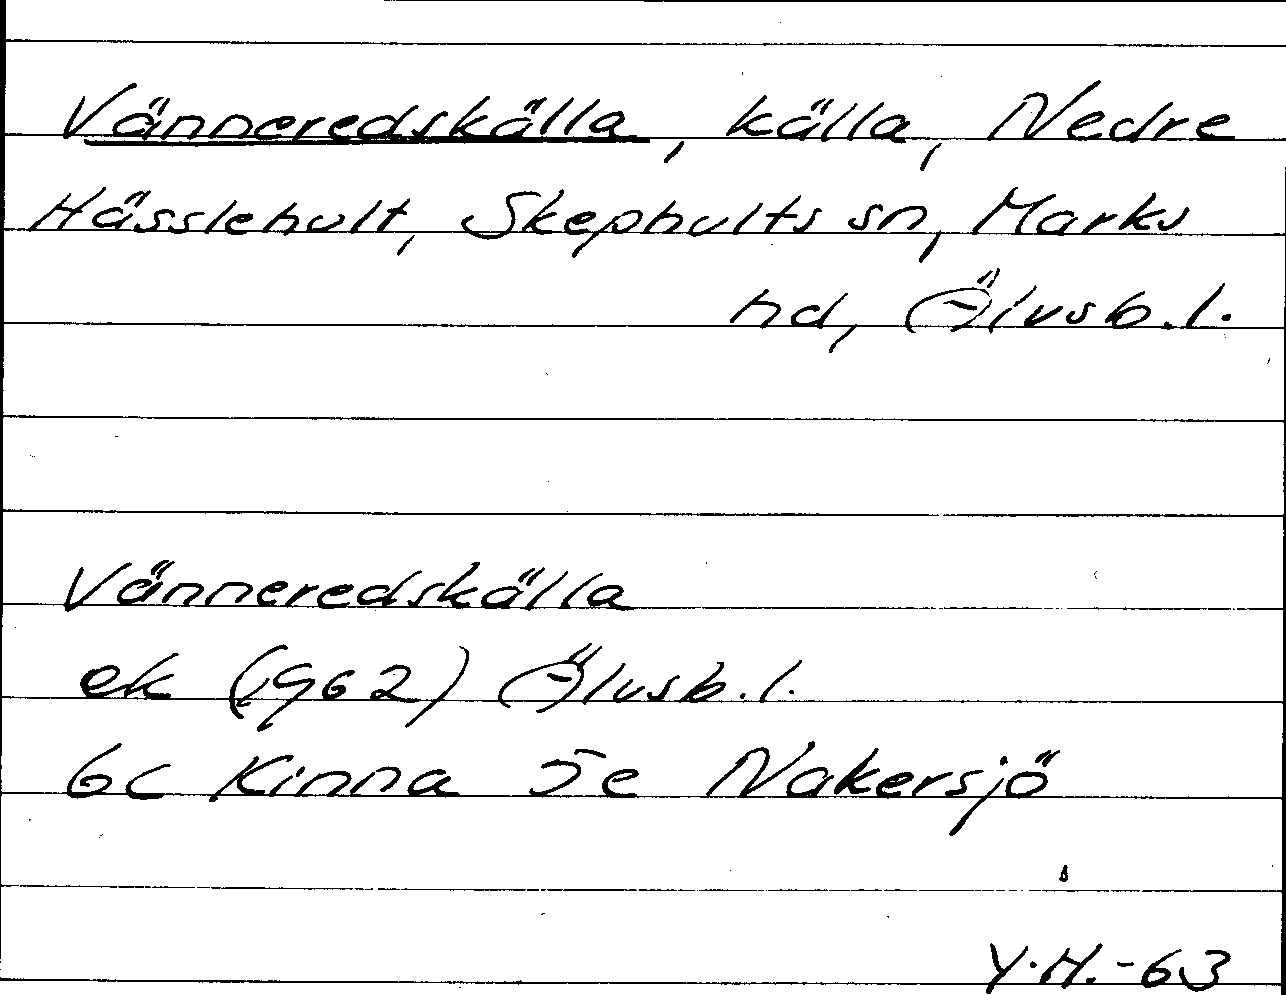 Vänneredskälla, källa, Nedre
Hässlehult, Skephults sn, Marks
hd, Älvsb.l.
Vänneredskälla
ek (1962) Älvsb.l.
6c Kinna 5e Nakersjö
Y.H.-63